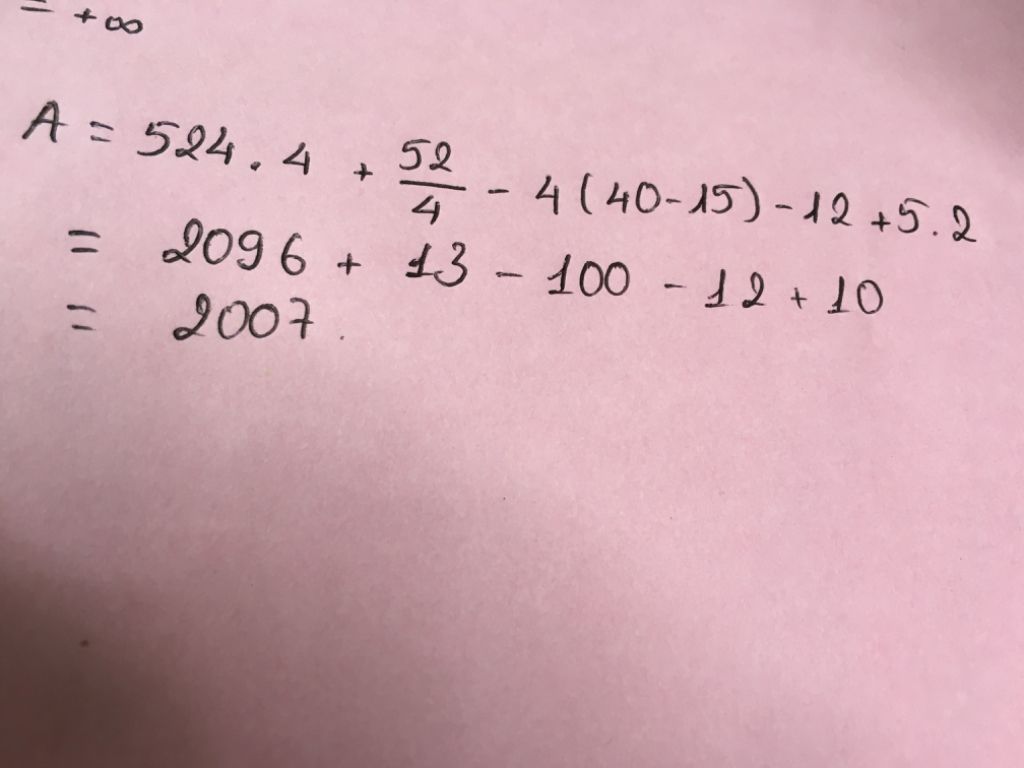 = +∞
A = 524 . 4 + 52/4 - 4 ( 40-15) - 12 + 5 . 2
= 2096 + 13 - 100 - 12 + 10
= 2007 .